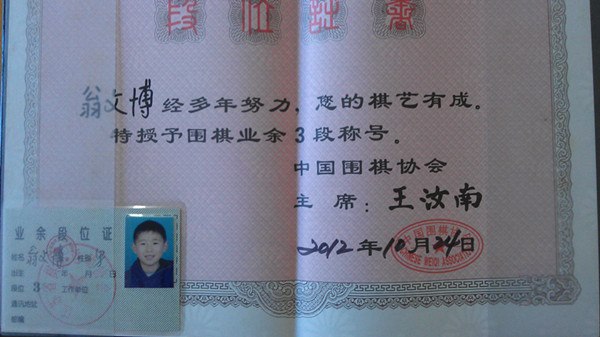 段位证书
翁文博 经多年努力，您的棋艺有成。
特授予围棋业余3段称号。
中国围棋协会
主 席：王汝南
2012年10月24日
CHINESE WEIQI ASSOCIATION
业余段位证
姓名 翁文博 性别 男
出生 年 月 日
段位 3 工作单位
通讯地址
邮编